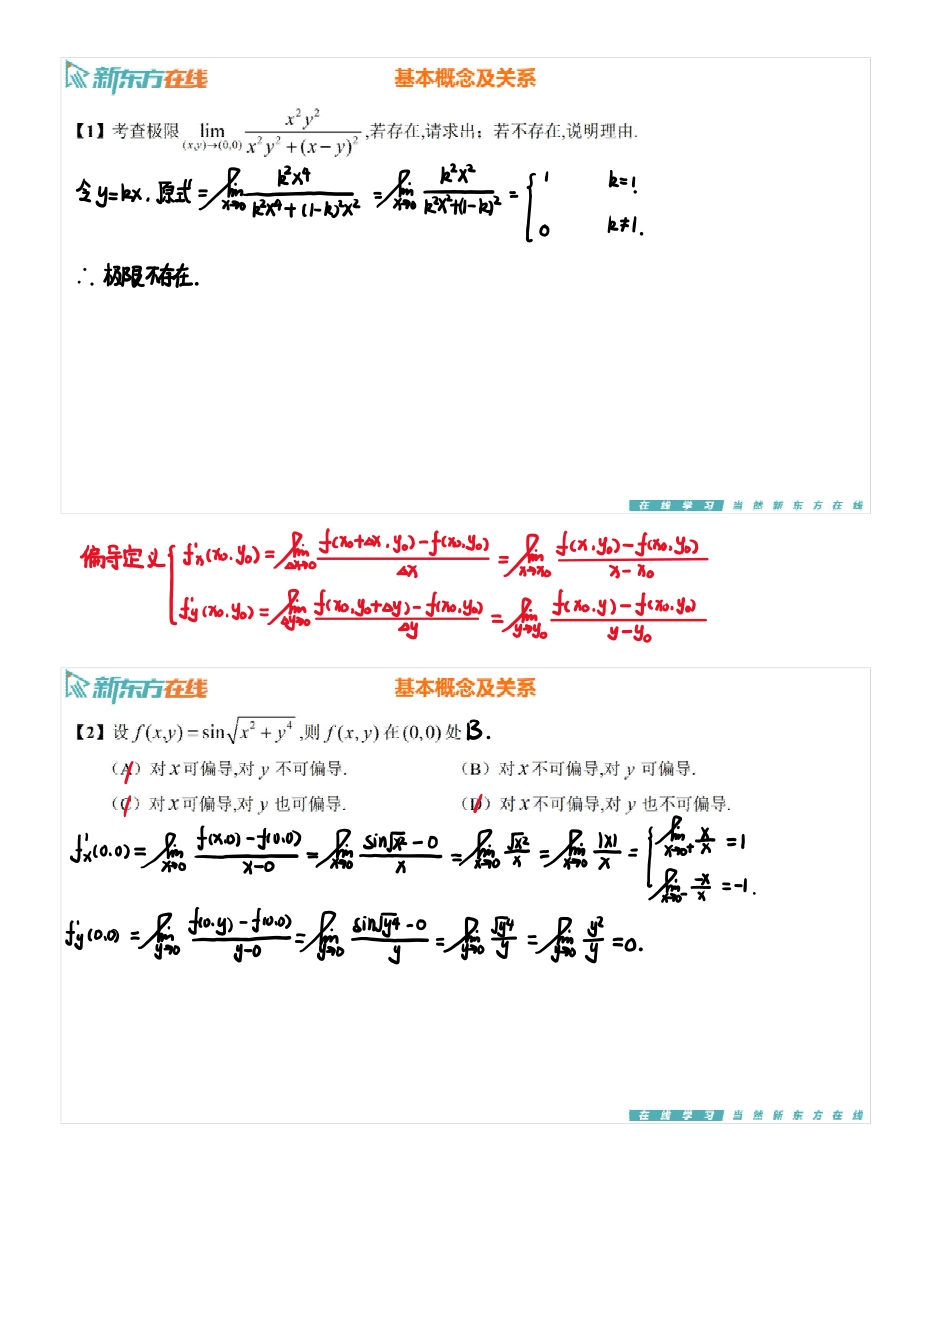 新东方在线 基本概念及关系
【1】考查极限 lim (x,y)→(0,0) x²y² / (x²y²+(x−y)²) ,若存在,请求出；若不存在,说明理由.
令y=kx. 原式= lim x→0 k²x⁴ / (k²x⁴+(1-k)²x²) = lim x→0 k²x² / (k²x²+(1-k)²) = { 1 k=1. 0 k≠1.
∴ 极限不存在.
在线学习 当然新东方在线
偏导定义 { f'x(x₀,y₀) = lim Δx→0 (f(x₀+Δx,y₀)-f(x₀,y₀)) / Δx = lim x→x₀ (f(x,y₀)-f(x₀,y₀)) / (x-x₀)
f'y(x₀,y₀) = lim Δy→0 (f(x₀,y₀+Δy)-f(x₀,y₀)) / Δy = lim y→y₀ (f(x₀,y)-f(x₀,y₀)) / (y-y₀)
新东方在线 基本概念及关系
【2】设 f(x,y)=sin√(x²+y⁴) ,则 f(x,y) 在(0,0)处 B.
（A）对 x 可偏导,对 y 不可偏导. （B）对 x 不可偏导,对 y 可偏导.
（C）对 x 可偏导,对 y 也可偏导. （D）对 x 不可偏导,对 y 也不可偏导.
f'x(0,0) = lim x→0 (f(x,0)-f(0,0)) / (x-0) = lim x→0 (sin√x²-0) / x = lim x→0 √x² / x = lim x→0 |x| / x = { lim x→0⁺ x/x =1
lim x→0⁻ -x/x =-1.
f'y(0,0) = lim y→0 (f(0,y)-f(0,0)) / (y-0) = lim y→0 (sin√y⁴-0) / y = lim y→0 √y⁴ / y = lim y→0 y² / y =0.
在线学习 当然新东方在线